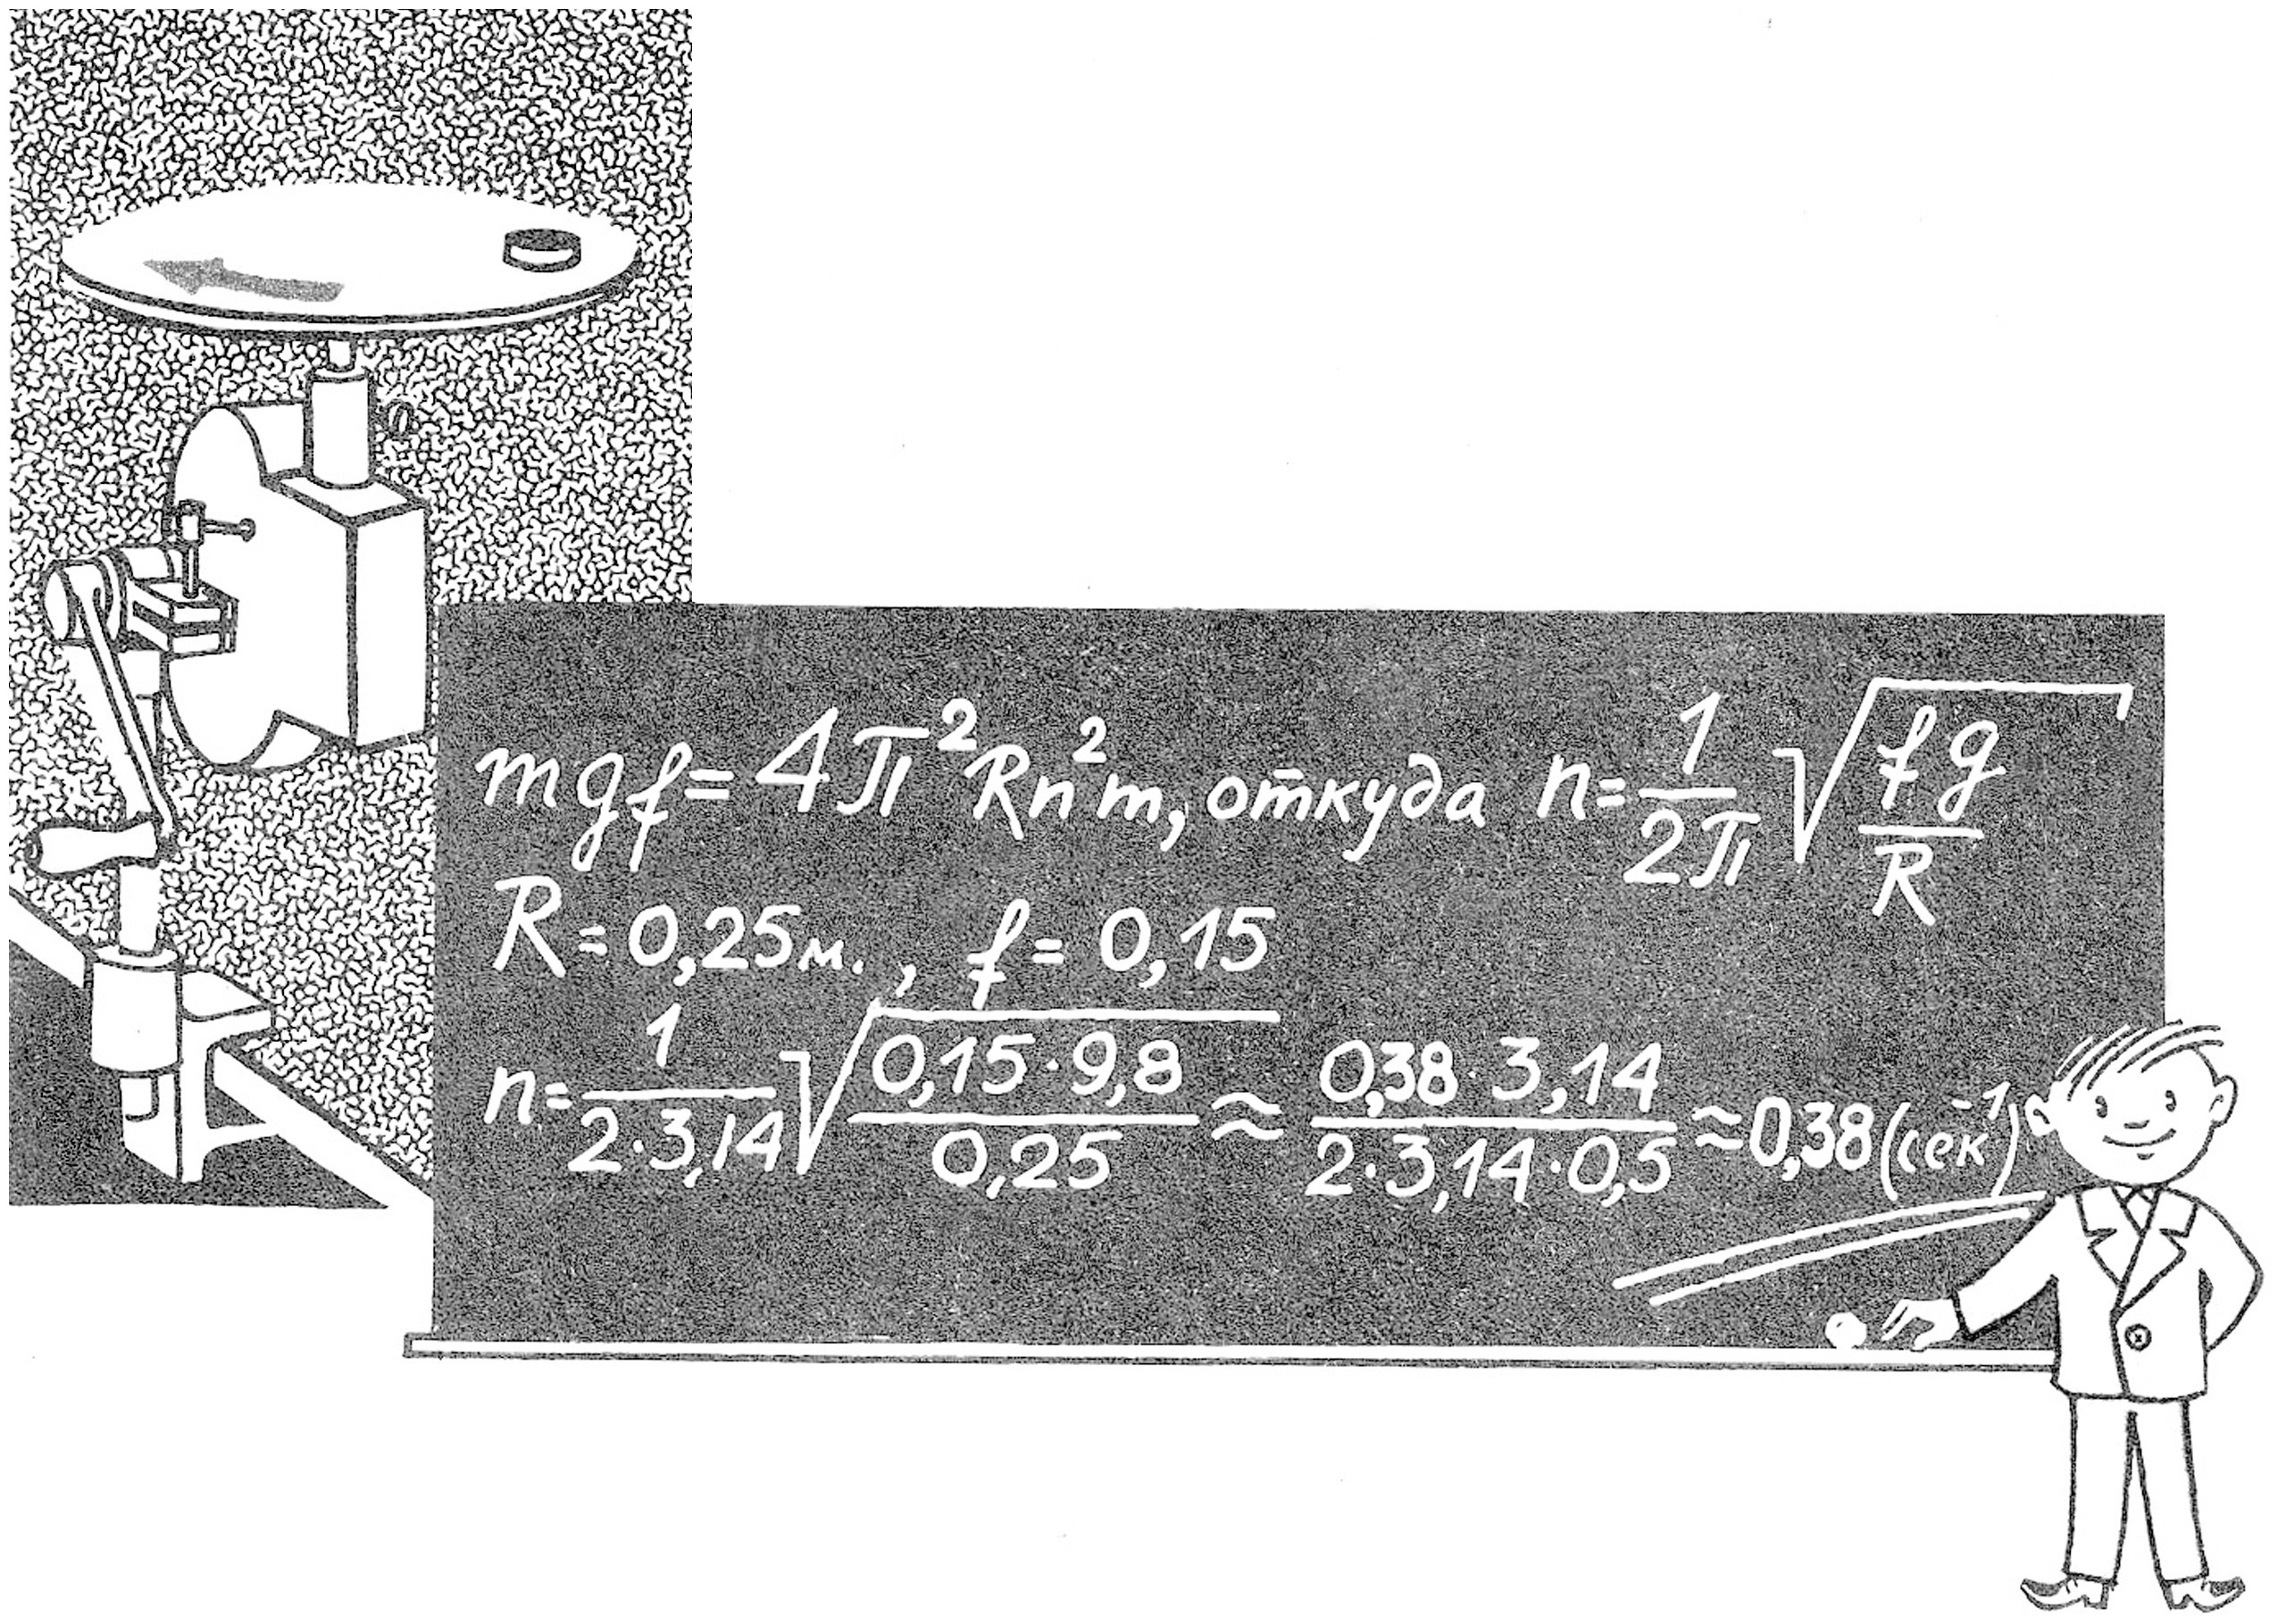 mgf = 4π²Rn²m, откуда n = 1/2π √fg/R
R = 0,25м., f = 0,15
n = 1/2·3,14 √0,15·9,8/0,25 ≈ 0,38·3,14/2·3,14·0,5 ≈ 0,38 (сек⁻¹)